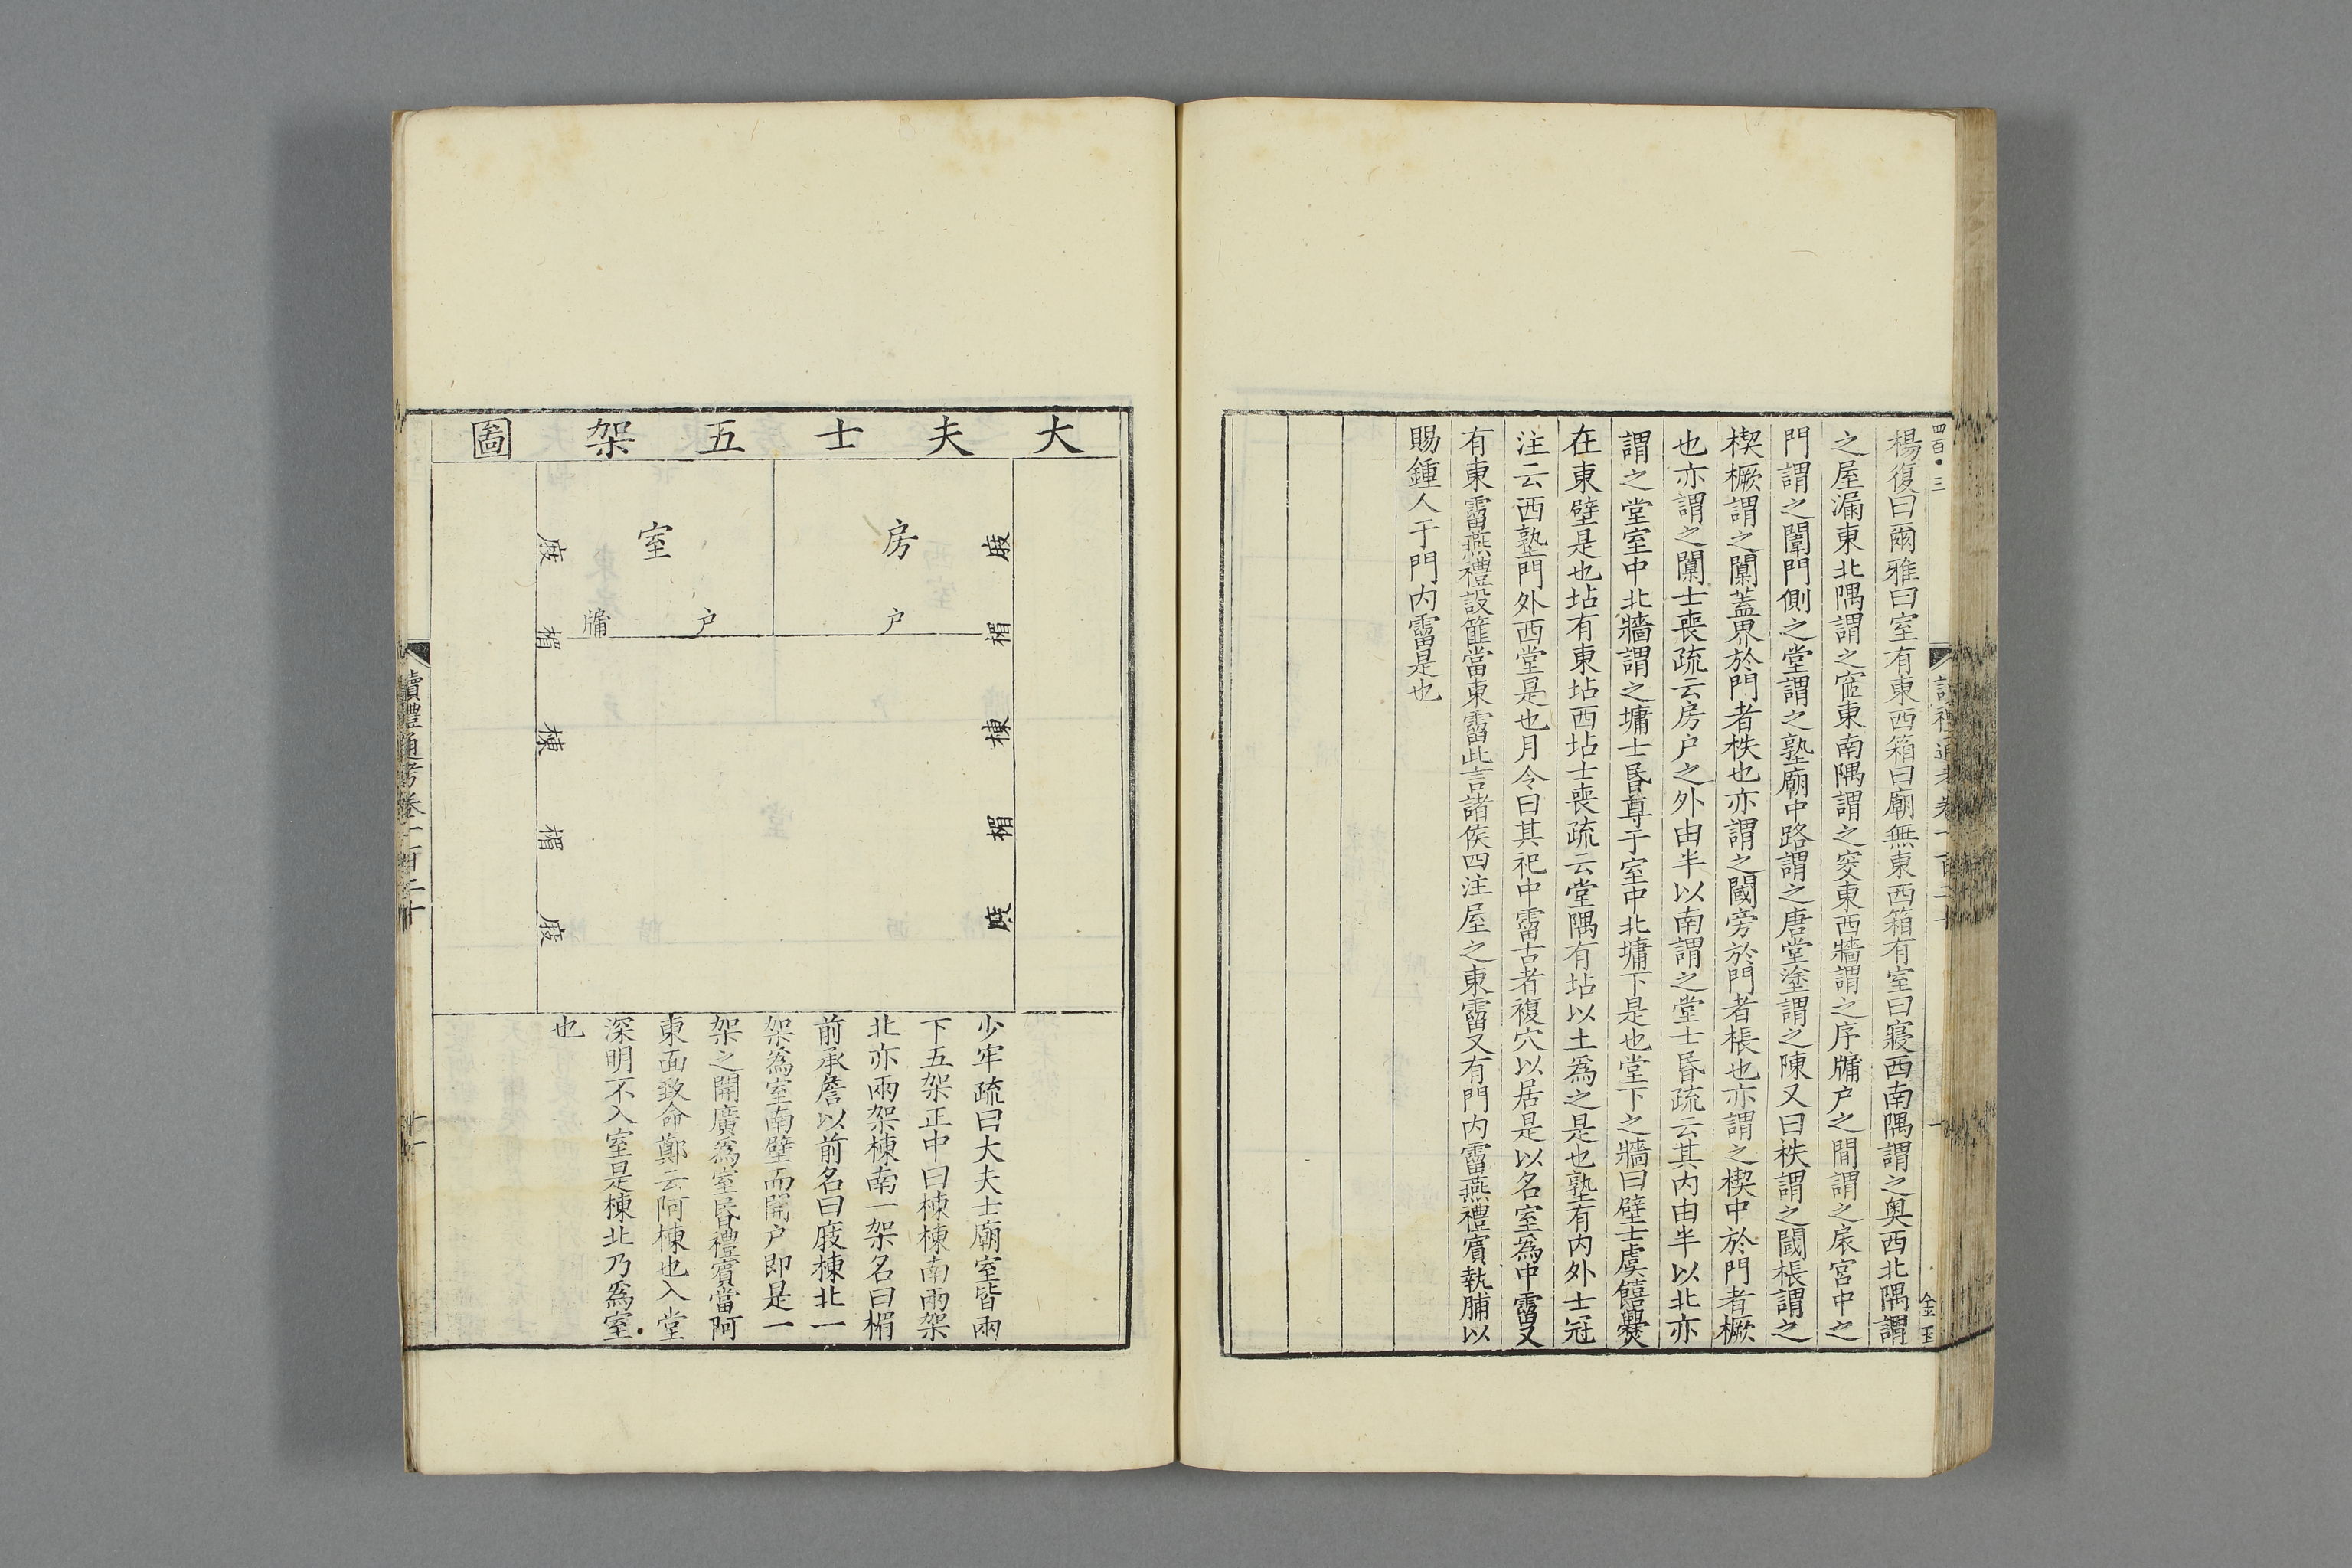 四百〇三
楊復曰爾雅曰室有東西箱曰廟無東西箱有室曰寢西南隅謂之奥西北隅謂
之屋漏東北隅謂之宧東南隅謂之窔東西牆謂之序牖户之間謂之扆宮中之
門謂之闈門側之堂謂之塾廟中路謂之唐堂塗謂之陳又曰柣謂之閾棖謂之
楔橛謂之闑蓋界於門者柣也亦謂之閾旁於門者棖也亦謂之楔中於門者橛
也亦謂之闑士喪疏云房户之外由半以南謂之堂士昏疏云其内由半以北亦
謂之堂室中北牆謂之墉士昏尊于室中北墉下是也堂下之牆曰壁士虞饎爨
在東壁是也坫有東坫西坫士喪疏云堂隅有坫以土爲之是也塾有内外士冠
注云西塾門外西堂是也月令曰其祀中霤古者複穴以居是以名室爲中霤又
有東霤燕禮設篚當東霤此言諸侯四注屋之東霤又有門内霤燕禮賓執脯以
賜鍾人于門内霤是也
金玉
大夫士五架圖
庪 楣 棟 楣 庪
房
户
室
户
牖
庪 楣 棟 楣 庪
少牢疏曰大夫士廟室皆兩
下五架正中曰棟棟南兩架
北亦兩架棟南一架名曰楣
前承簷以前名曰庪棟北一
架爲室南壁而開户即是一
架之開廣爲室昏禮賓當阿
東面致命鄭云阿棟也入堂
深明不入室是棟北乃爲室
也
讀禮通考卷一百二十